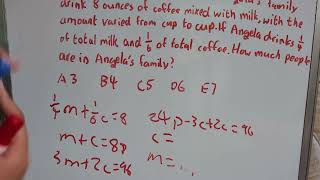 family
drink 8 ounces of coffee mixed with milk, with the
amount varied from cup to cup. If Angela drinks 1/4
of total milk and 1/6 of total coffee. How much people
are in Angela's family?
A 3 B 4 C 5 D 6 E 7
1/4 m + 1/6 c = 8 24p - 3c + 2c = 96
m + c = 8p c =
3m + 2c = 96 m = ...